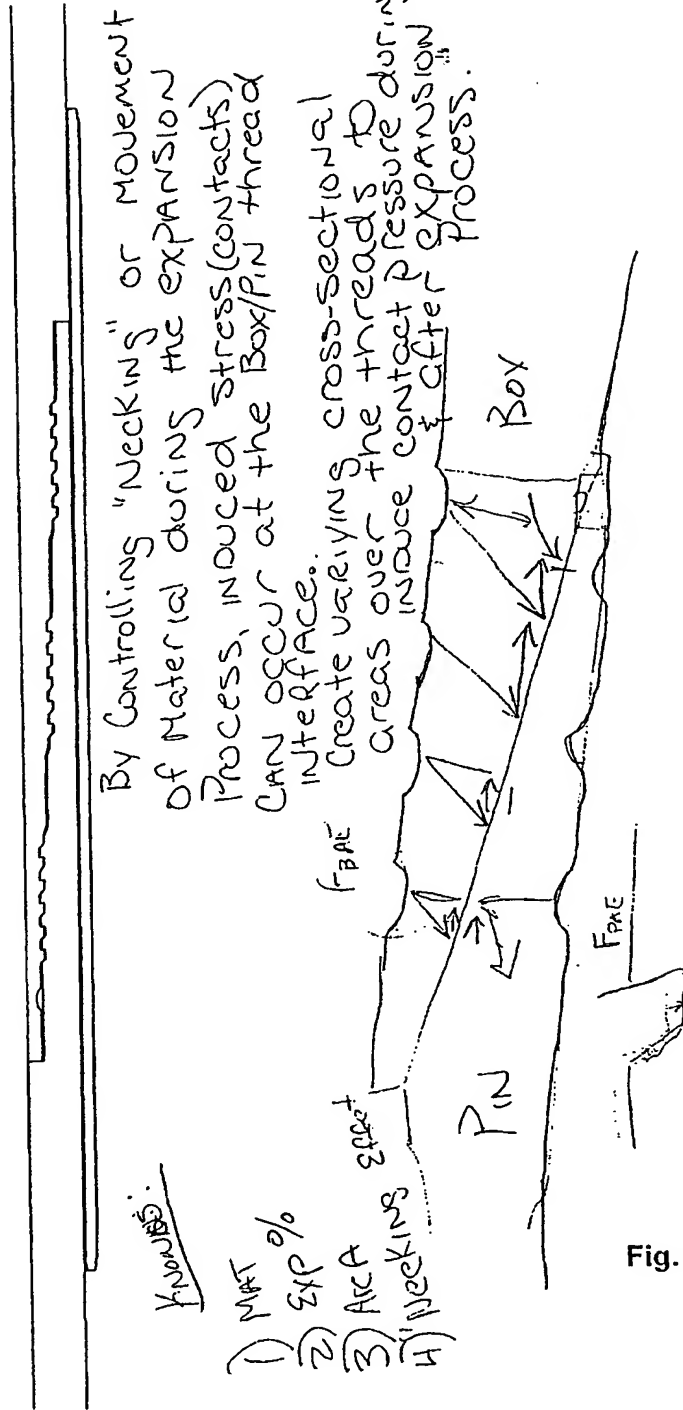 By Controlling "Necking" or movement
of Material during the expansion
Process, induced stress (contacts)
can occur at the Box/Pin thread
interface.
Create variying cross-sectional
areas over the threads to
induce contact pressure during
& after expansion
process.
Knowns:
1) MAT
2) Exp %
3) Area
4) "Necking Effect
FBAE
Box
Pin
FPAE
Fig.